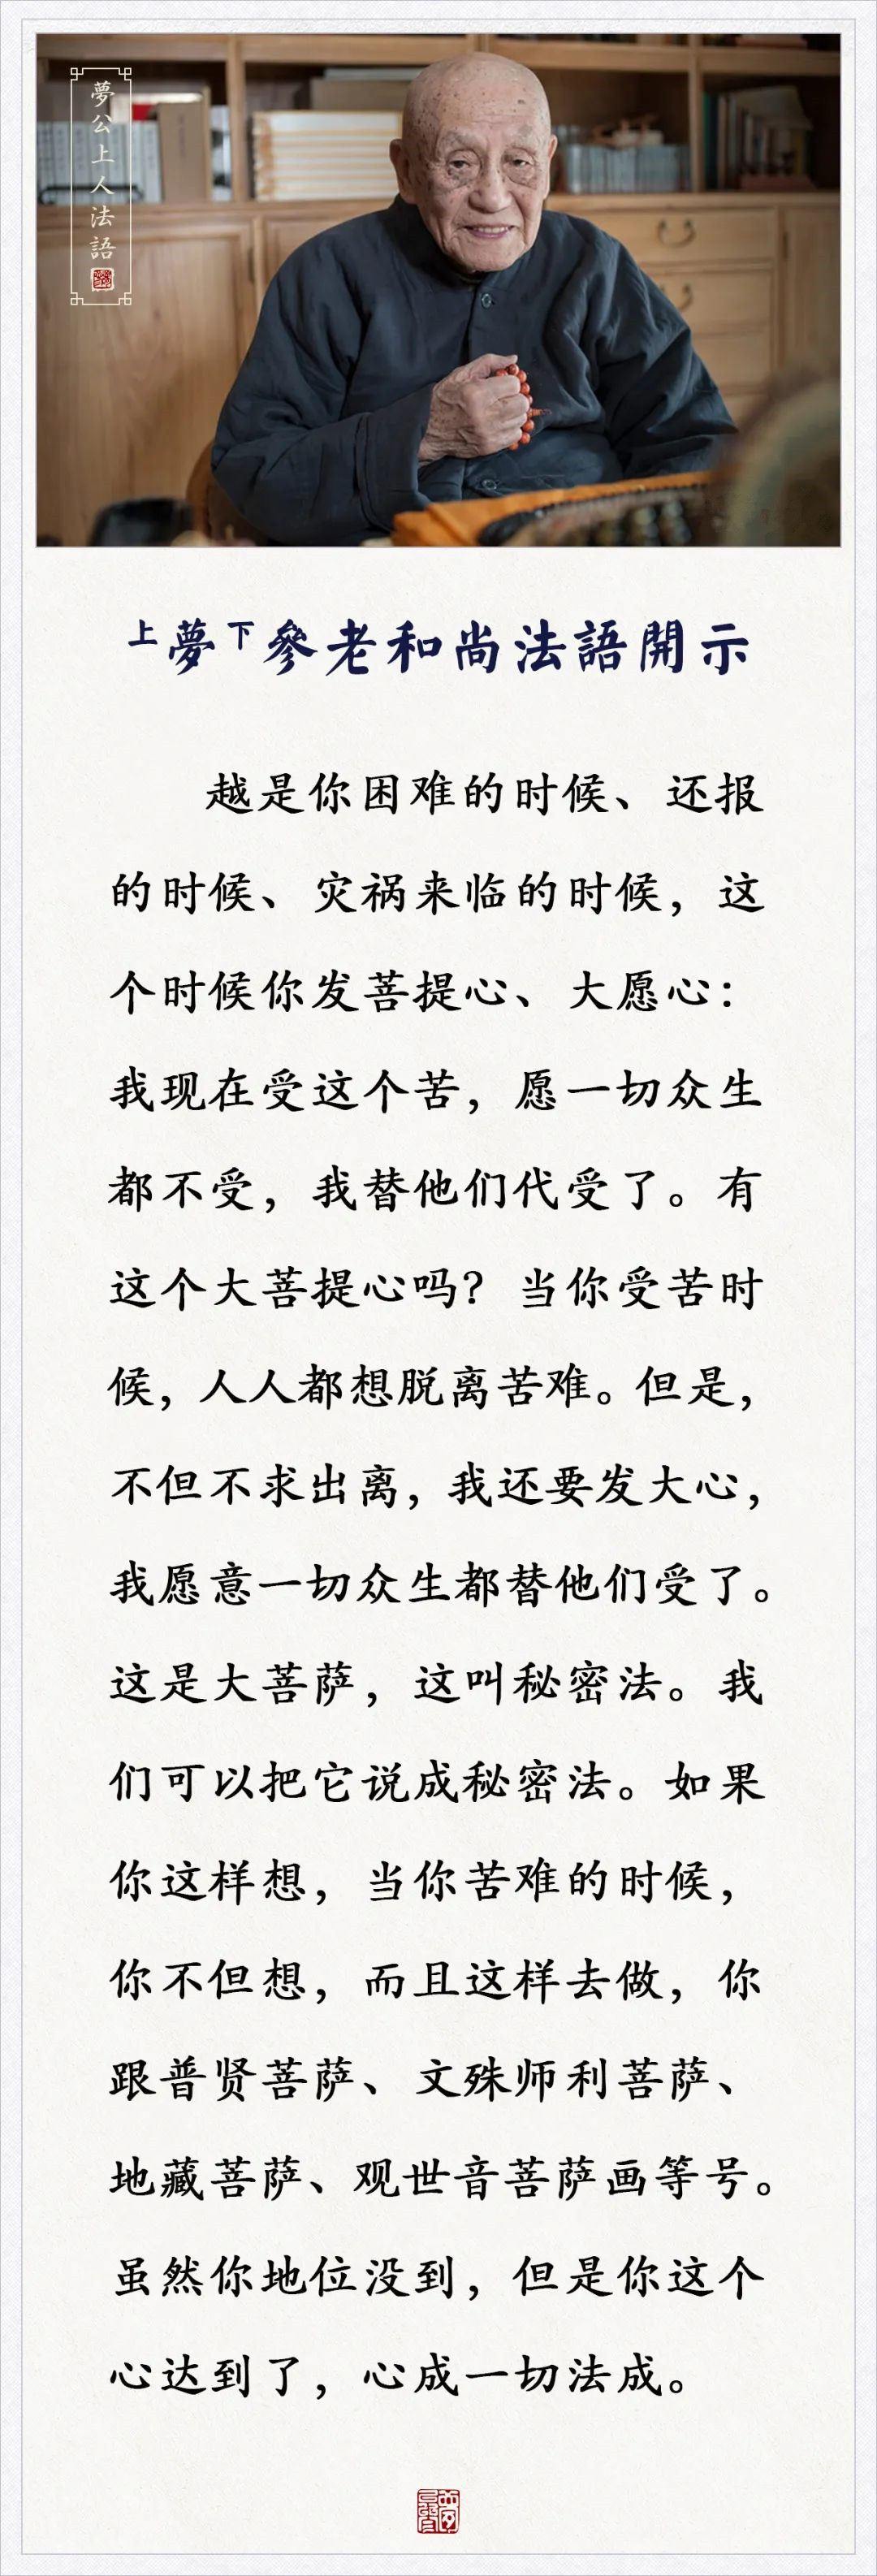 夢公上人法語
上夢下參老和尚法語開示
越是你困难的时候、还报
的时候、灾祸来临的时候，这
个时候你发菩提心、大愿心：
我现在受这个苦，愿一切众生
都不受，我替他们代受了。有
这个大菩提心吗？当你受苦时
候，人人都想脱离苦难。但是，
不但不求出离，我还要发大心，
我愿意一切众生都替他们受了。
这是大菩萨，这叫秘密法。我
们可以把它说成秘密法。如果
你这样想，当你苦难的时候，
你不但想，而且这样去做，你
跟普贤菩萨、文殊师利菩萨、
地藏菩萨、观世音菩萨画等号。
虽然你地位没到，但是你这个
心达到了，心成一切法成。